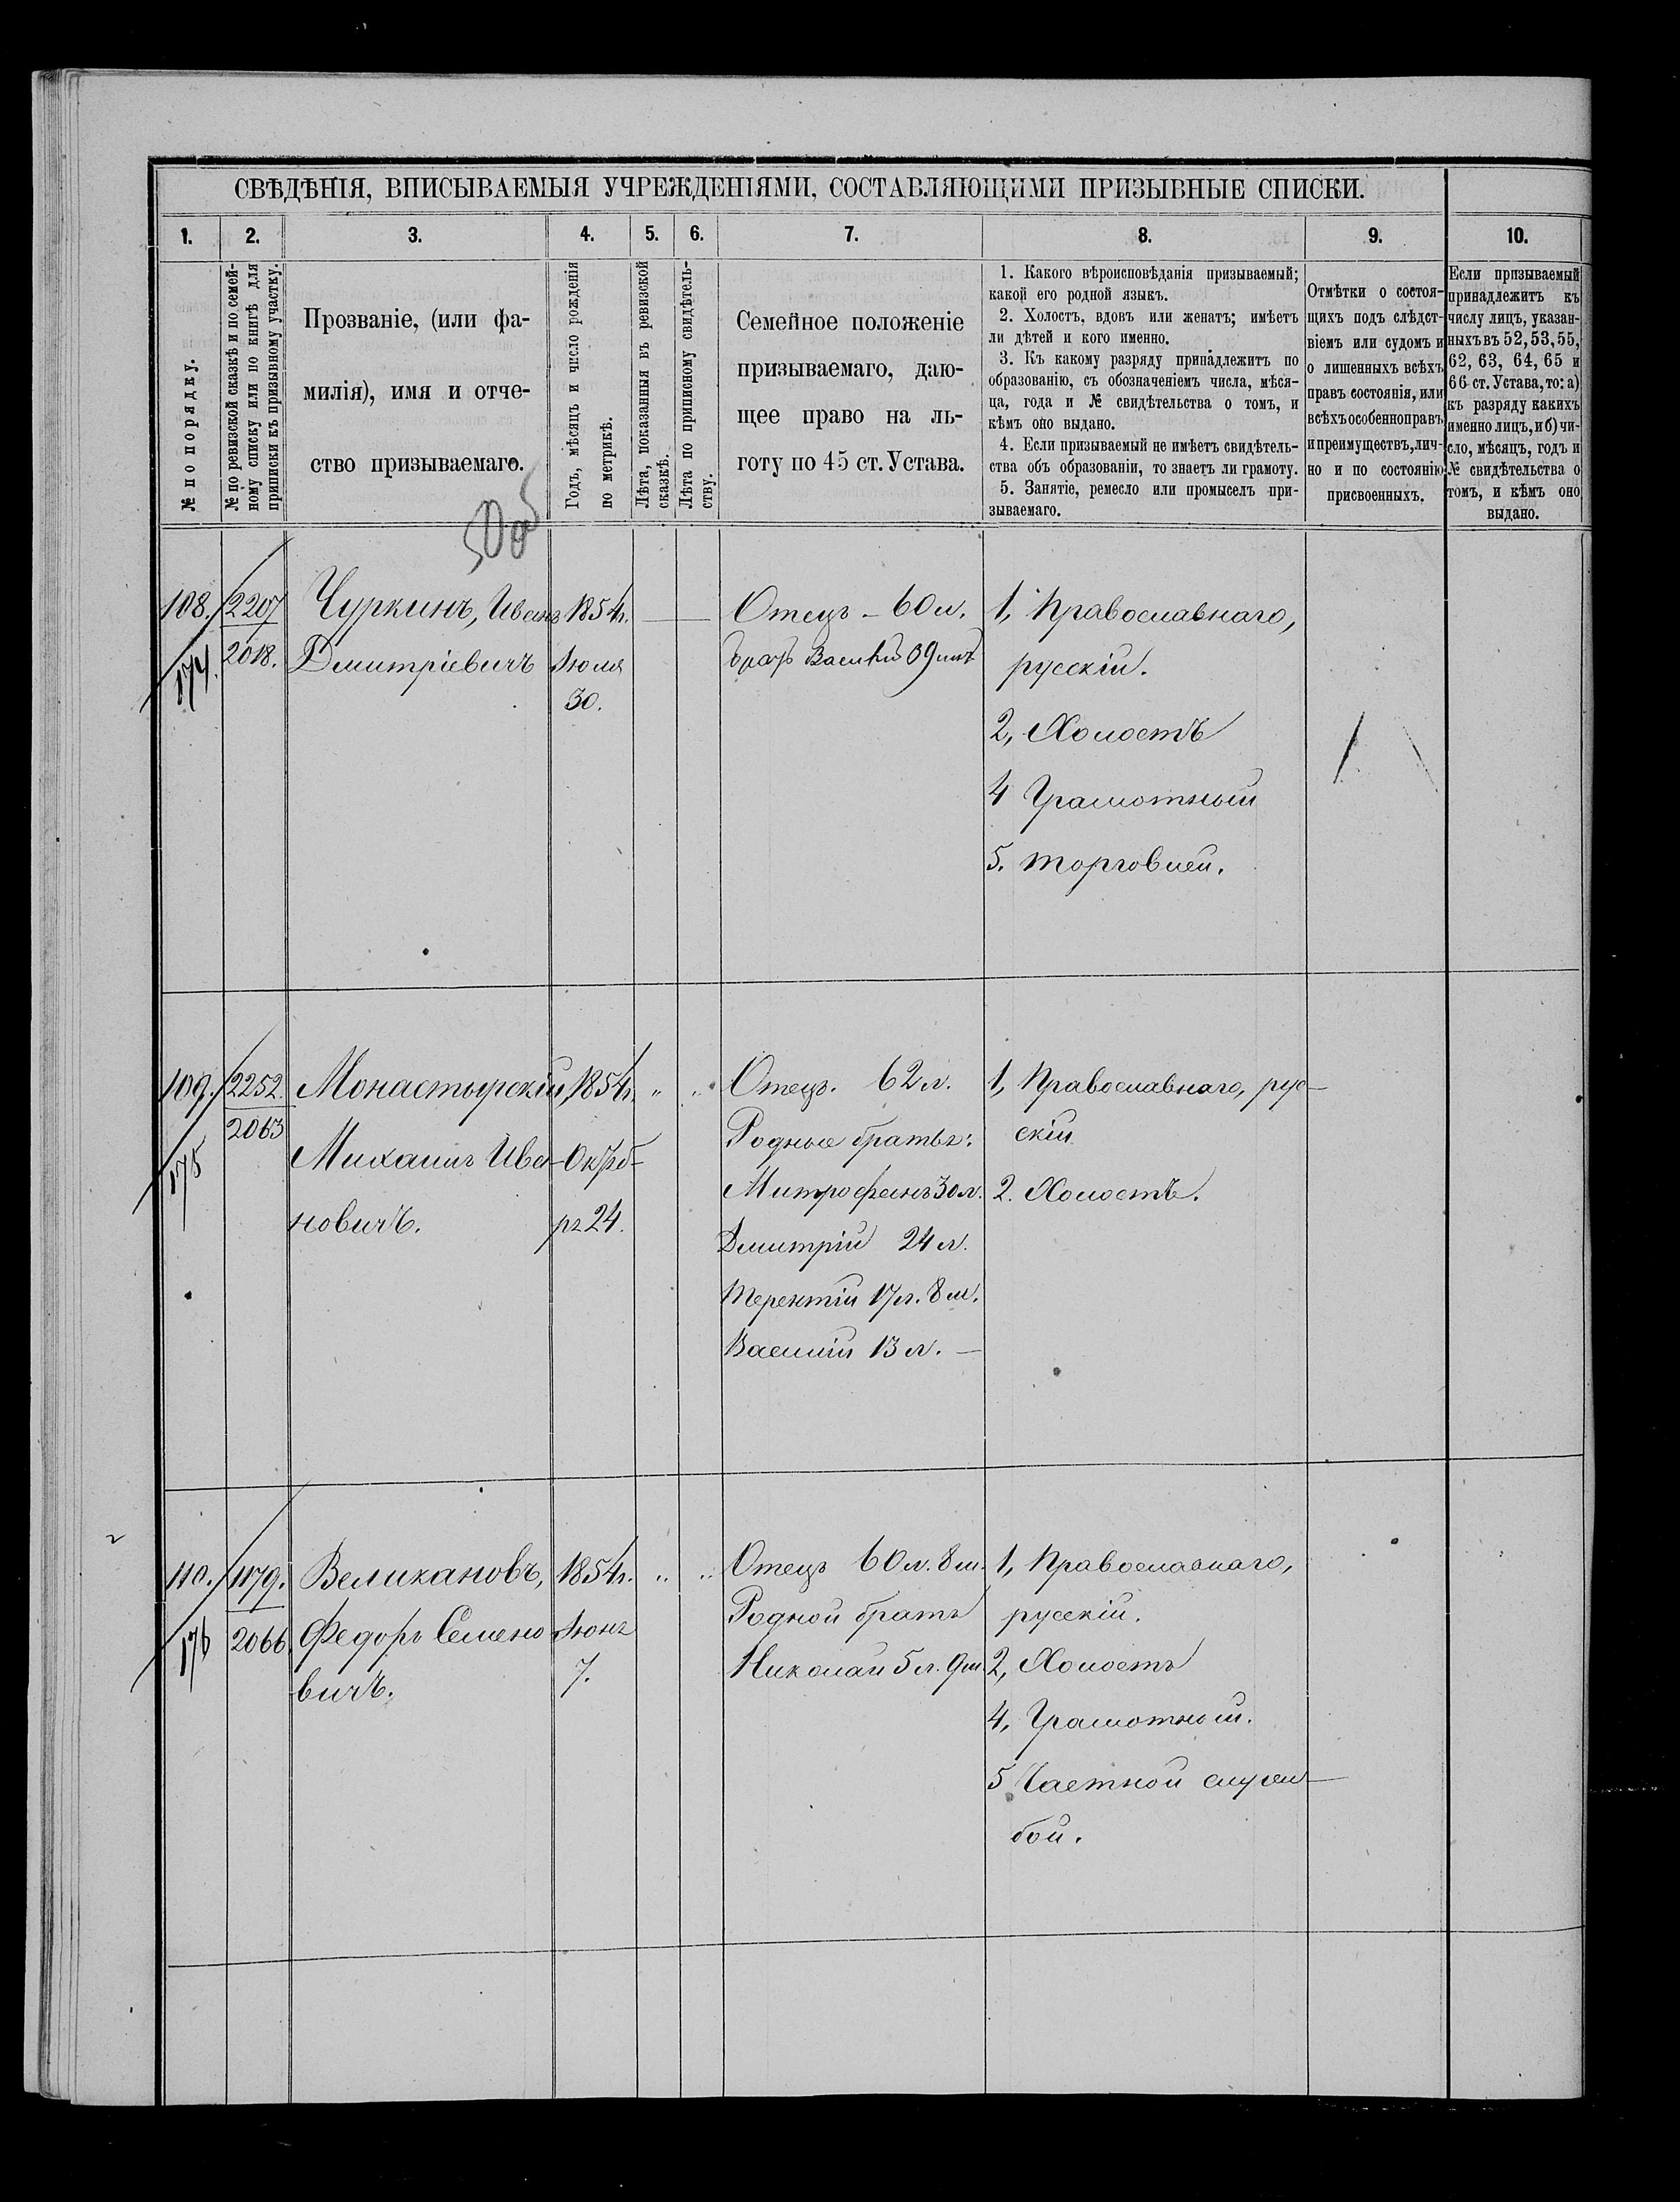 СВѢДѢНІЯ, ВПИСЫВАЕМЫЯ УЧРЕЖДЕНІЯМИ, СОСТАВЛЯЮЩИМИ ПРИЗЫВНЫЕ СПИСКИ.
1. 2. 3. 4. 5. 6. 7. 8. 9. 10.
№ по порядку.
№ по ревизской сказкѣ и по семей-
ному списку или по книгѣ для
приписки къ призывному участку.
Прозваніе, (или фа-
милія), имя и отче-
ство призываемаго.
Годъ, мѣсяцъ и число рожденія
по метрикѣ.
Лѣта, показанныя въ ревизской
сказкѣ.
Лѣта по приписному свидѣтель-
ству.
Семейное положеніе
призываемаго, даю-
щее право на ль-
готу по 45 ст. Устава.
1. Какого вѣроисповѣданія призываемый;
какой его родной языкъ.
2. Холостъ, вдовъ или женатъ; имѣетъ
ли дѣтей и кого именно.
3. Къ какому разряду принадлежитъ по
образованію, съ обозначеніемъ числа, мѣся-
ца, года и № свидѣтельства о томъ, и
кѣмъ оно выдано.
4. Если призываемый не имѣетъ свидѣтель-
ства объ образованіи, то знаетъ ли грамоту.
5. Занятіе, ремесло или промыселъ при-
зываемаго.
Отмѣтки о состоя-
щихъ подъ слѣдст-
віемъ или судомъ и
о лишенныхъ всѣхъ
правъ состоянія, или
всѣхъ особенно правъ
и преимуществъ, лич-
но и по состоянію
присвоенныхъ.
Если призываемый
принадлежитъ къ
числу лицъ, указан-
ныхъ въ 52, 53, 55,
62, 63, 64, 65 и
66 ст. Устава, то: а)
къ разряду какихъ
именно лицъ, и б) чи-
сло, мѣсяцъ, годъ и
№ свидѣтельства о
томъ, и кѣмъ оно
выдано.
108.
174.
2207
2018.
Чуркинъ, Иванъ
Дмитріевичъ
1854 г.
Іюля
30.
Отецъ – 60 л.
братъ Василій
1, Православнаго,
русскій.
2, Холостъ
4 Грамотный
5. торговлей.
109.
175
2252.
2063
Монастырскій,
Михаилъ Ива-
новичъ.
1854 г.
Октяб-
ря 24.
Отецъ. 62 л.
Родные братья:
Митрофанъ 30 л.
Дмитрій 24 л.
Терентій 17 л. 8 м.
Василій 13 л. –
1, Православнаго, рус-
скій
2. Холостъ.
110.
176
1179.
2066.
Великановъ,
Федоръ Семено
вичъ.
1854 г.
Іюня
7.
Отецъ 60 л. 8 м.
Родной братъ
Николай 5 л. 9 м.
1, Православнаго,
русскій.
2, Холостъ
4, Грамотный.
5 Частной служ-
бой.